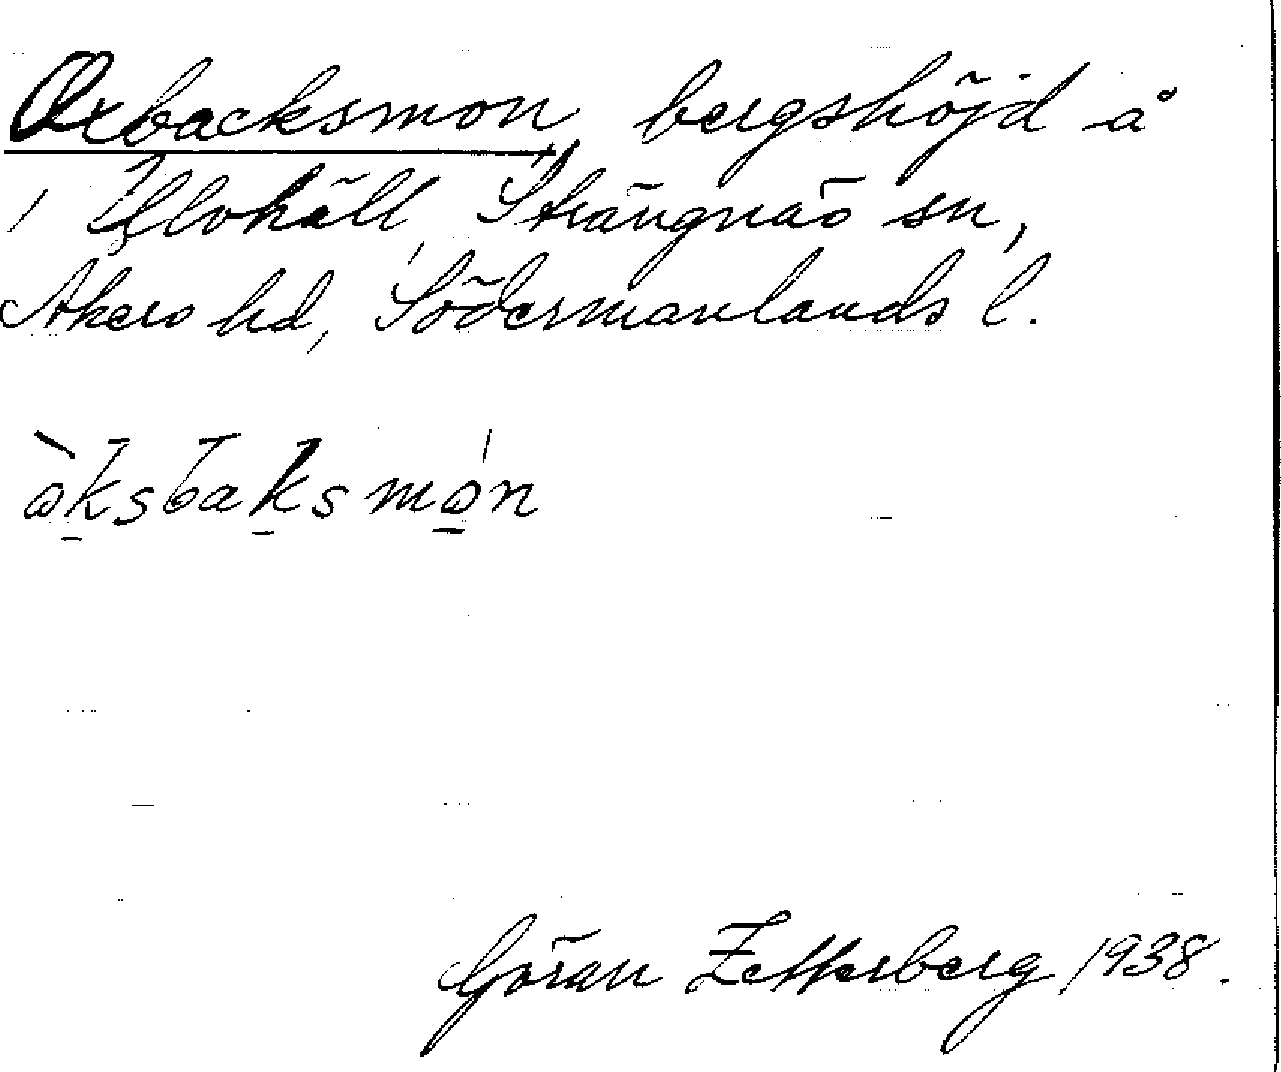 Oxbacksmon, bergshöjd å
Ulvhäll, Strängnäs sn,
Åkers hd, Södermanlands l.
Göran Zetterberg 1938.